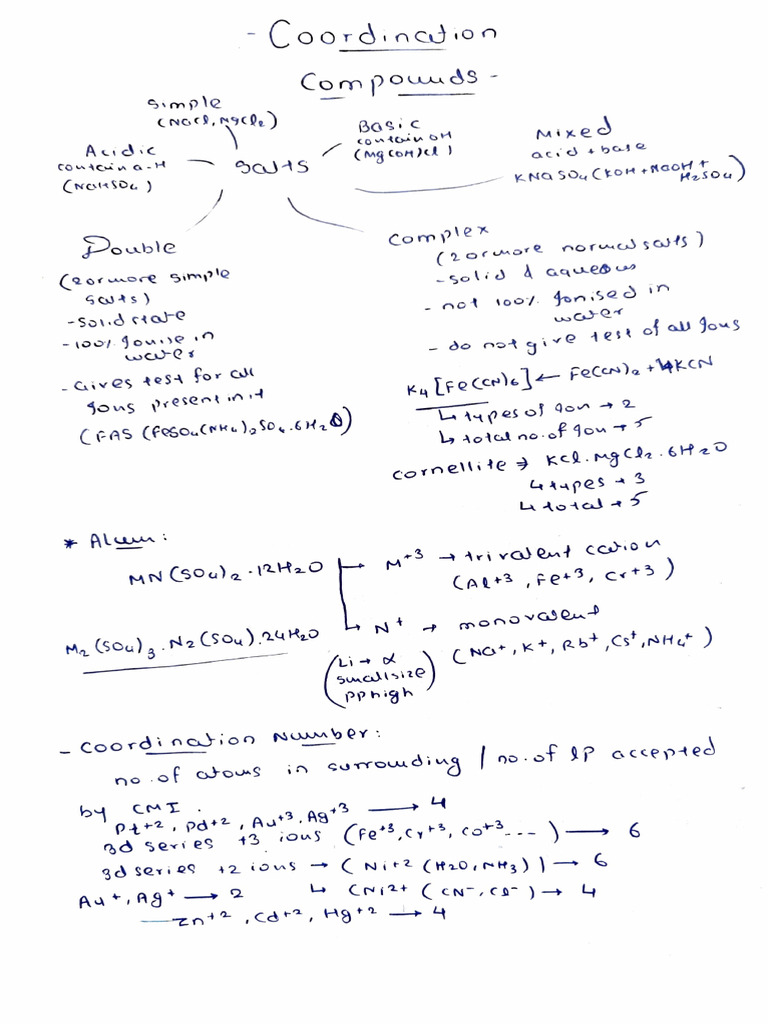 - Coordination
Compounds -
Simple
(NaCl, MgCl2)
Acidic
contain a-H
(NaHSO4)
Salts
Basic
contain OH
(Mg(OH)Cl)
Mixed
acid + base
KNaSO4 (KOH + NaOH +
H2SO4)
Double
(2 or more simple
salts)
- Solid state
- 100% Ionise in
water
- Gives test for all
Ions present in it
(FAS (FeSO4(NH4)2SO4.6H2O)
Complex
(2 or more normal salts)
- solid & aqueous
- not 100% Ionised in
water
- do not give test of all Ions
K4[Fe(CN)6] ← Fe(CN)2 + 4KCN
↳ types of Ion → 2
↳ total no. of Ion → 5
Cornellite → KCl.MgCl2.6H2O
↳ types → 3
↳ total → 5
* Alum:
MN(SO4)2.12H2O
M+3 → trivalent cation
(Al+3, Fe+3, Cr+3)
M2(SO4)3.N2(SO4).24H2O
N+ → monovalent
(Na+, K+, Rb+, Cs+, NH4+)
(Li → α
small size
PP high)
- Coordination Number:
no. of atoms in surrounding / no. of lp accepted
by CMI.
Pt+2, Pd+2, Au+3, Ag+3 → 4
3d series +3 ions (Fe+3, Cr+3, Co+3...) → 6
3d series +2 ions → (Ni+2 (H2O, NH3)) → 6
Au+, Ag+ → 2
↳ (Ni2+ (CN-, Cl-) → 4
Zn+2, Cd+2, Hg+2 → 4